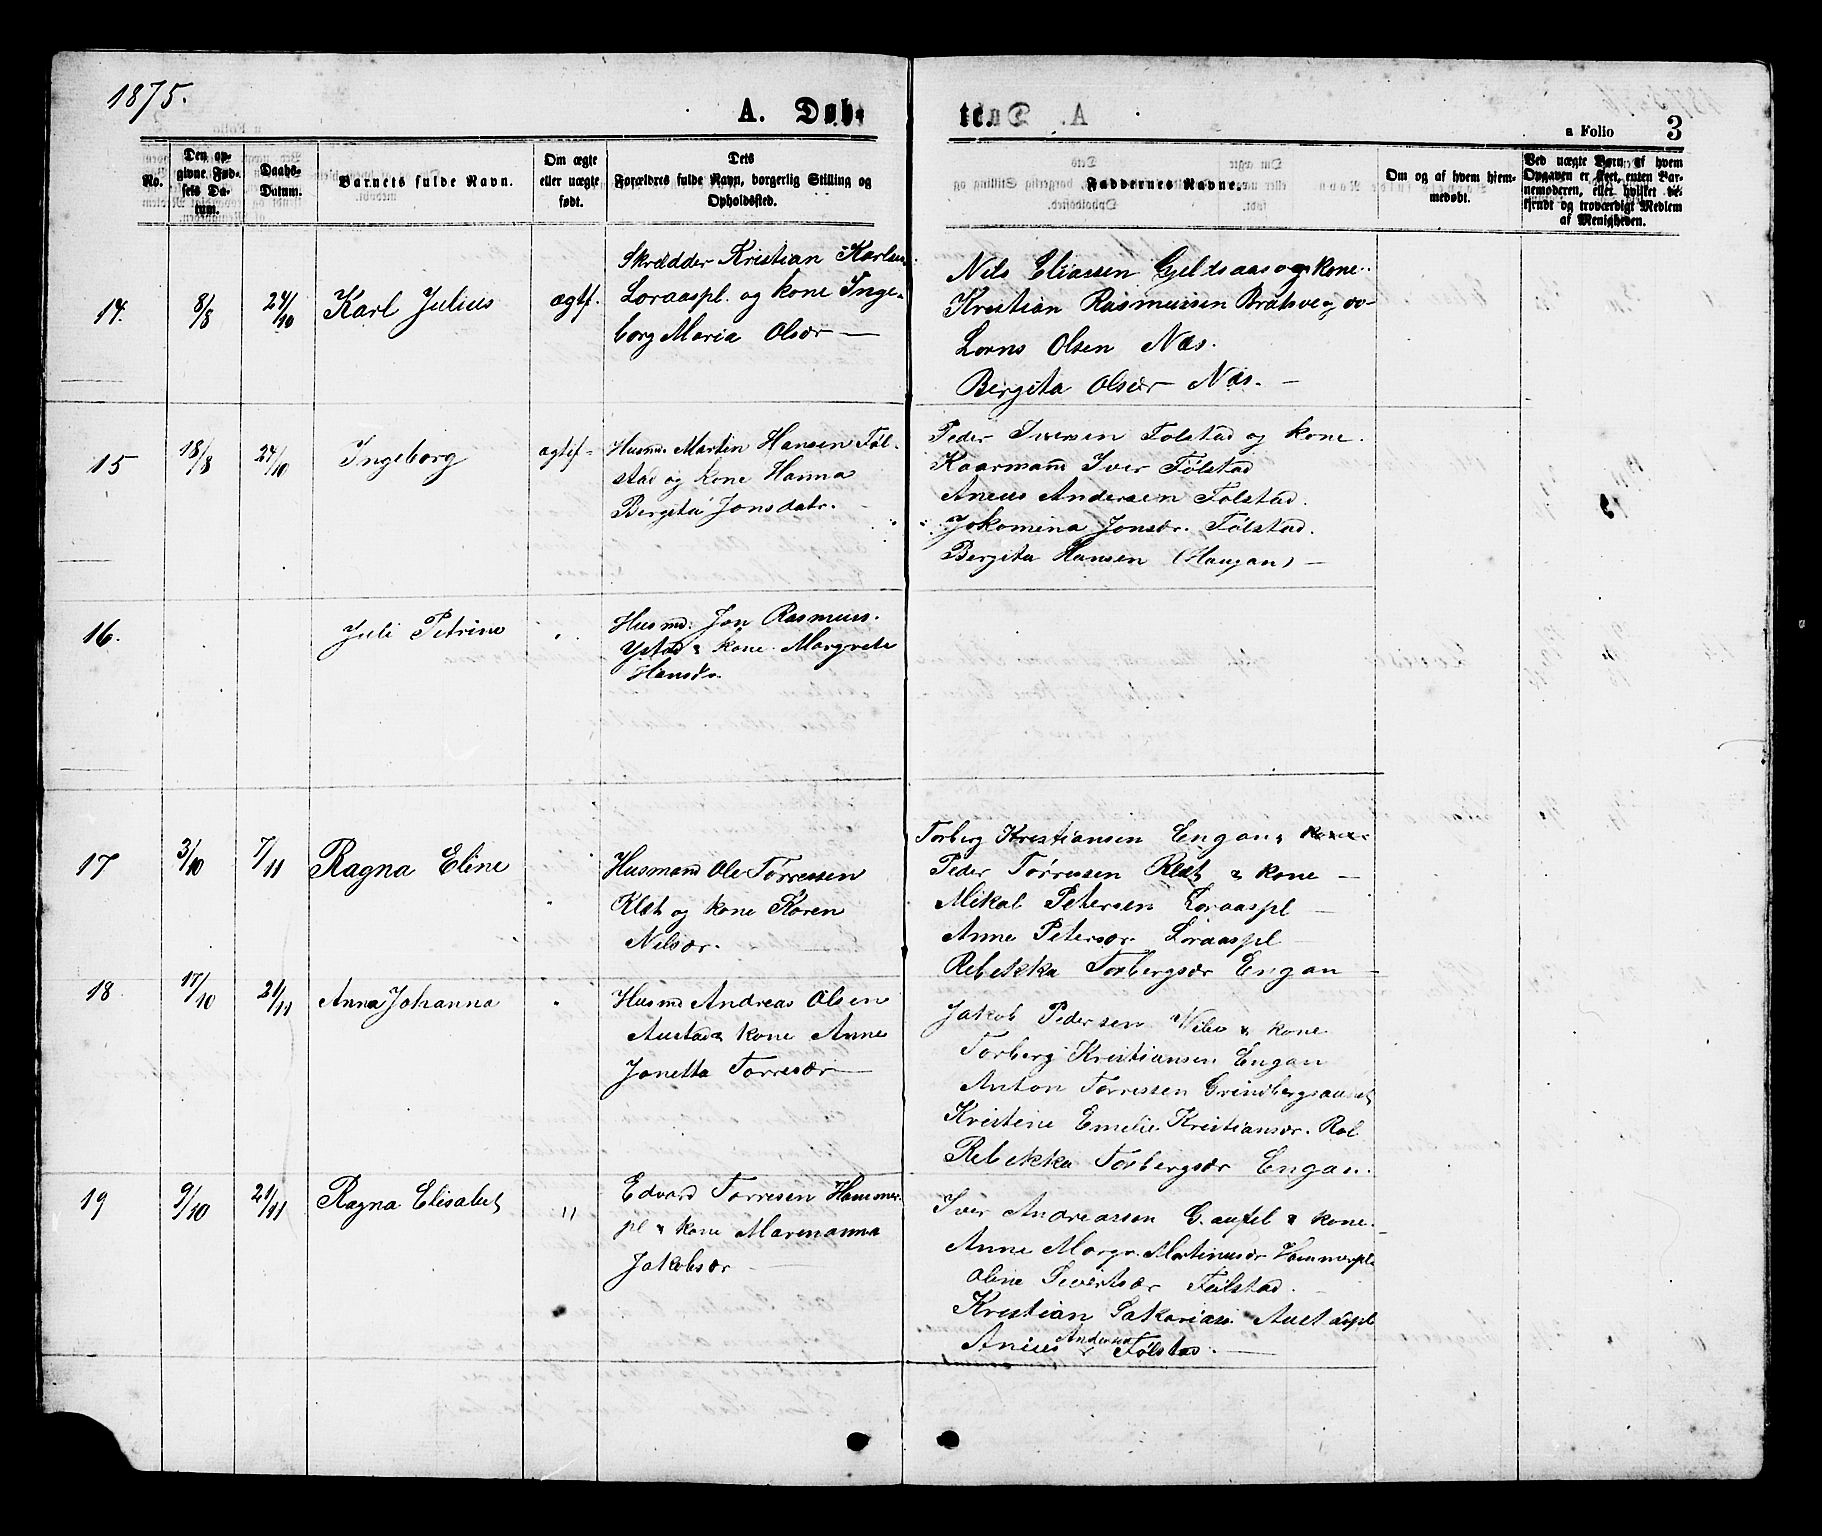 1875.
A. Døb-
te.
a Folio 3
No.
Den op-
givne Fød-
sels Da-
tum.
Daabs-
Datum.
Barnets fulde Navn.
Om ægte
eller uægte
født.
Dets
Forældres fulde Navn, borgerlig Stilling og
Opholdssted.
Faddernes Navne.
Om og af hvem hjem-
medøbt.
Ved uægte Børn, af hvem
Opgaven er skeet, enten Bar-
nemoderen, eller hvilket be-
kjendt og troværdigt Medlem
af Menigheden.
14. 8/8 24/10 Karl Julius ægtf.
Skrædder Kristian Karlsen
Loraaspl. og kone Inge-
borg Maria Olsdr —
Nils Eliassen Geldsaas og kone.
Kristian Rasmussen
Lorns Olsen Næs.
Bergita Olsdr Næs. —
15 18/8 24/10 Ingeborg ægtef-
Husmd. Martin Hansen Føl-
stad og kone Hanna
Bergita Jonsdatr.
Peder Iversen Følstad og kone.
Kaarmand Iver Følstad
Anius Andersen Følstad.
Jokomina Jonsdr. Følstad.
Bergita Hansen (Haugan) —
16. Juli Petrine "
Husmd. Jon Rasmus.
Ystad & kone Margrete
Hansdr.
17 3/10 7/11 Ragna Eline "
Husmand Ole Tørressen
Klæt og kone Karen
Nilsdr.
Torberg Kristiansen Engan & kone
Peder Tørresen Klæt & kone —
Mikal Petersen Loraaspl —
Anne Petersdr. Loraaspl —
Rebekka Torbergsdr Engan —
18 17/10 21/11 Anna Johanna "
Husmd Andreas Olsen
Austad & kone Anne
Jonetta Torresdr —
Jakob Pedersen & kone
Torberg Kristiansen Engan
Anton Tørressen Grindbergsaunet
Kristine Emelie Kristiansdr. Rol
Rebekka Torbergsdr Engan.
19 9/10 21/11 Ragna Elisabet "
Edvard Torresen Hammer-
pl & kone Marenanna
Jakobsdr —
Iver Andreassen & kone.
Anne Margr. Martinusdr Hammerpl.
Oline Sivertsdr Følstad.
Kristian Sakarias. Austadpl
Anius Andersen Følstad. —